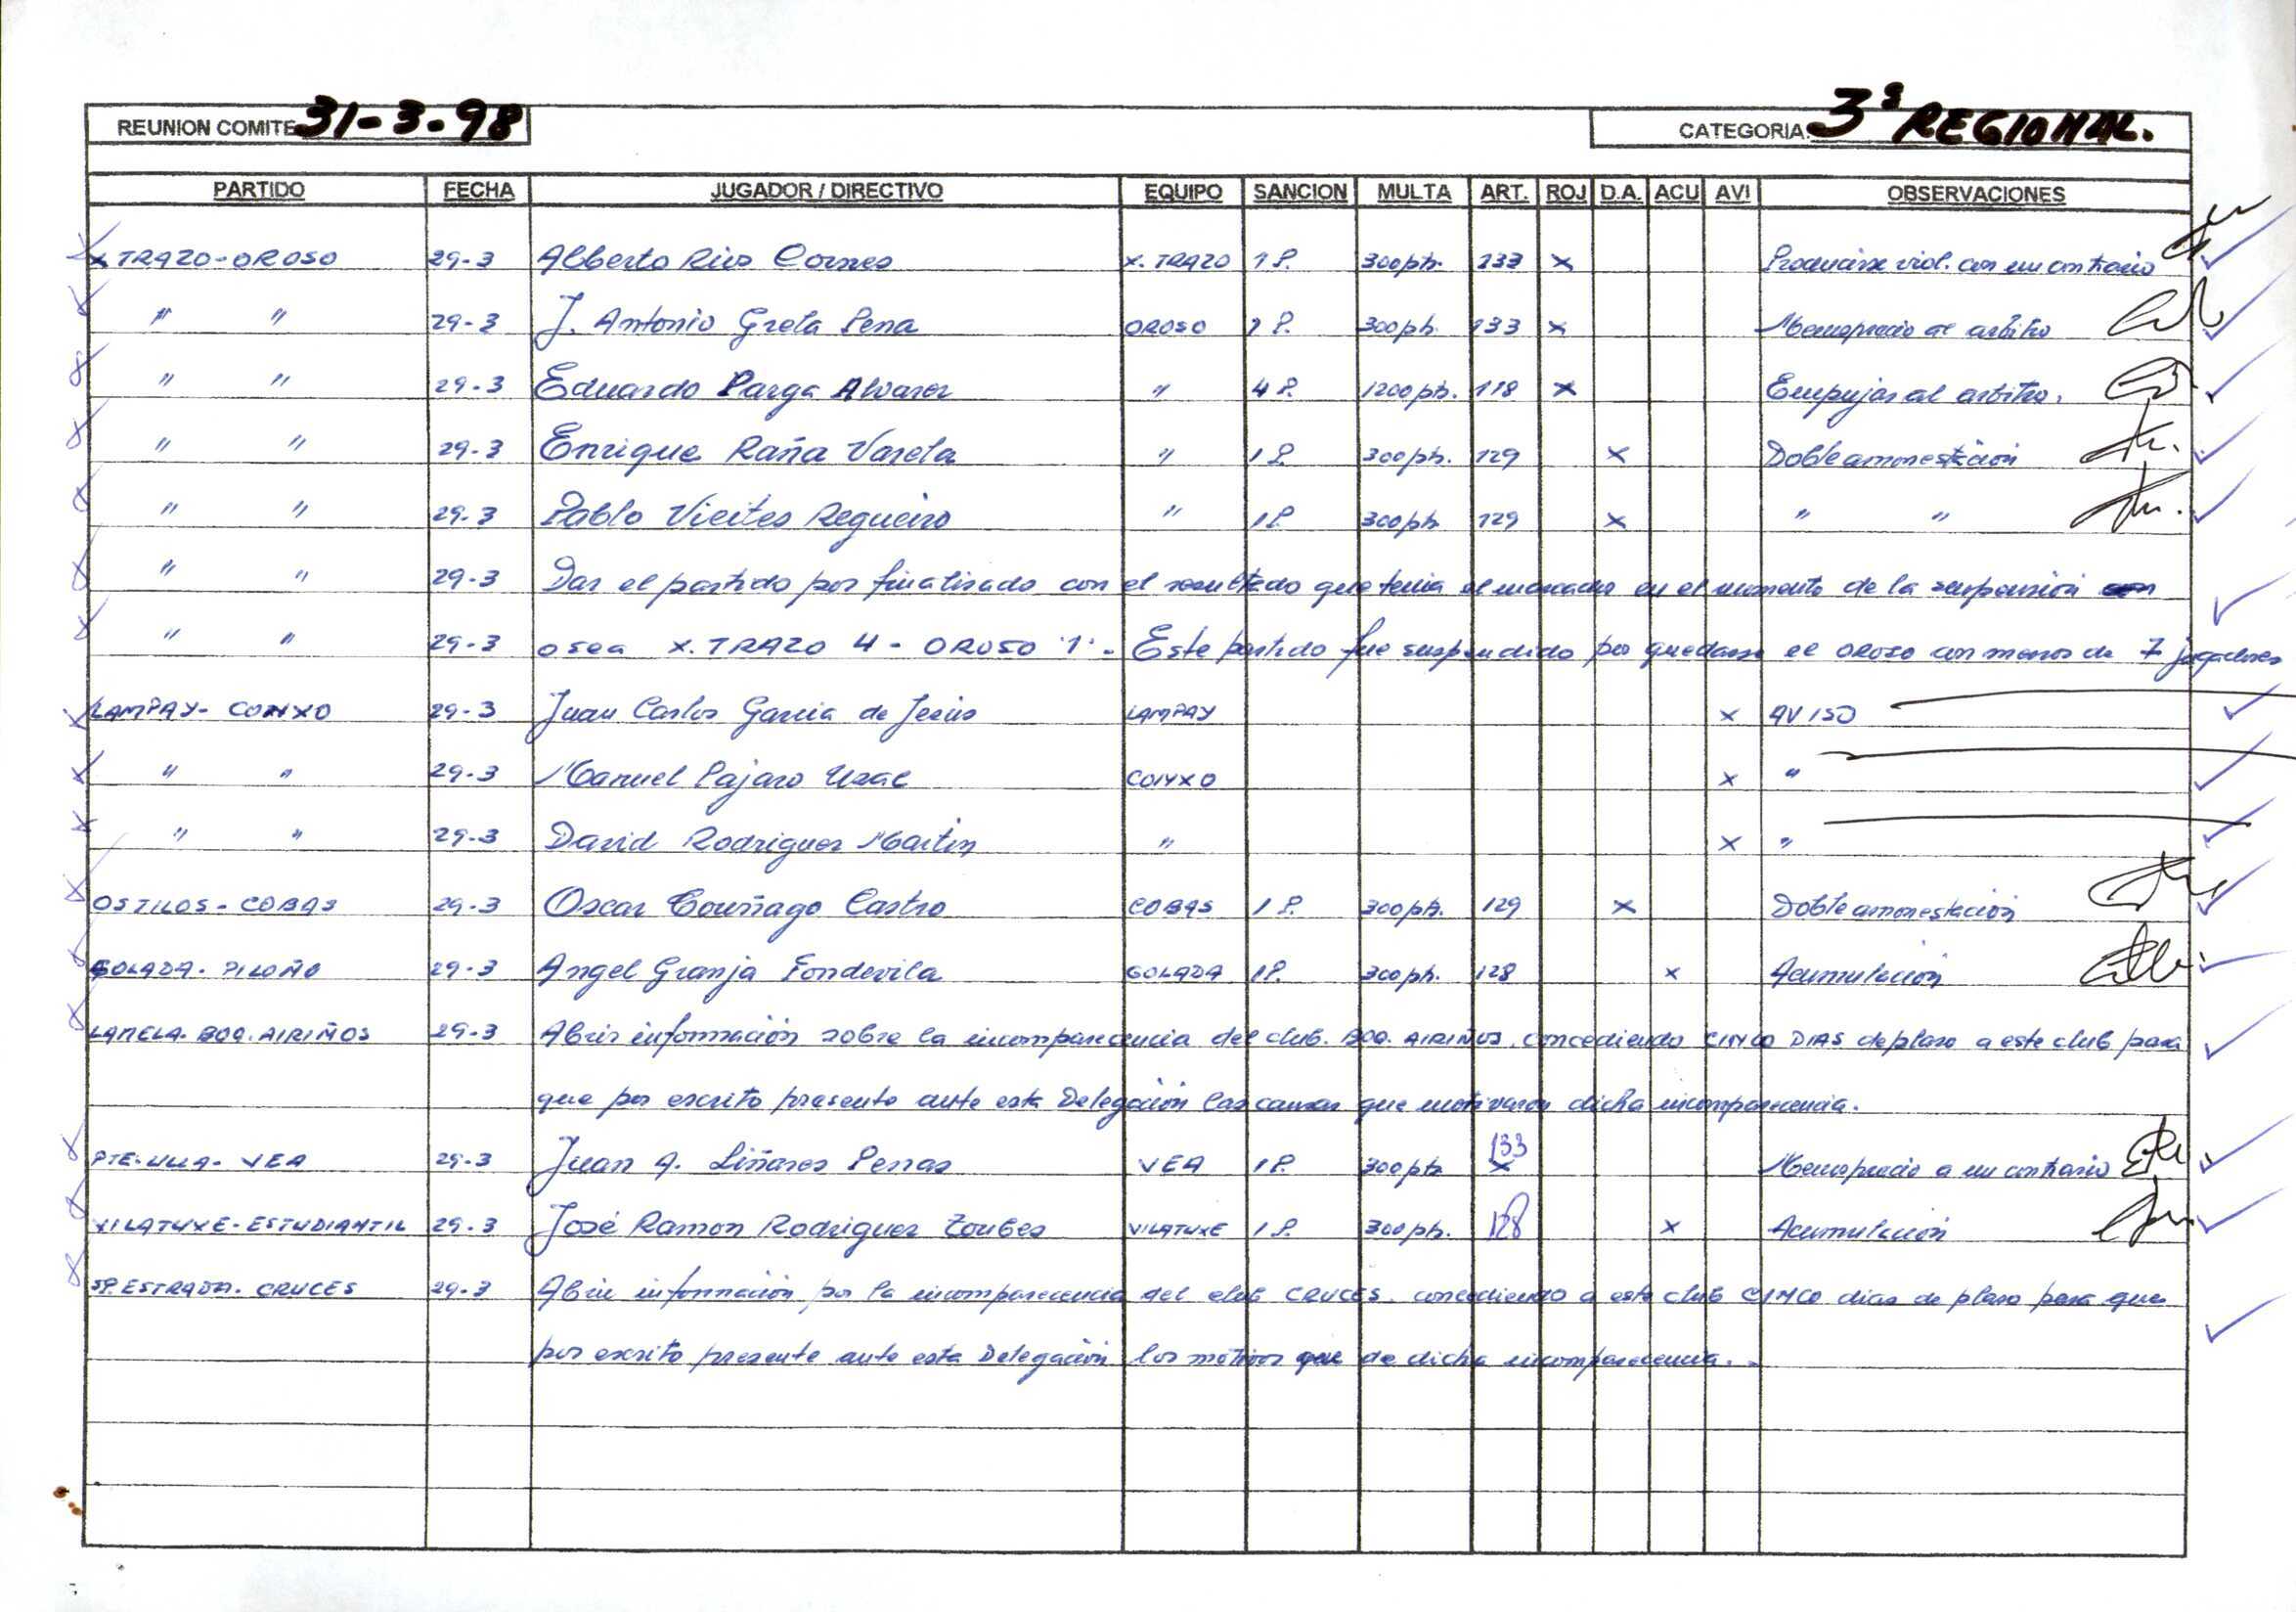 REUNION COMITE 31-3-98 CATEGORIA. 3ª REGIONAL.
PARTIDO FECHA JUGADOR / DIRECTIVO EQUIPO SANCION MULTA ART. ROJ D.A. ACU AVI OBSERVACIONES
X TRAZO-OROSO 29-3 Alberto Rios X. TRAZO 1 P. 300 pts. x Producirse viol. con un contrario
" " 29-3 J. Antonio Grela Pena OROSO 1 P. 300 pts. 133 x Menosprecio al arbitro
" " 29-3 Eduardo Parga Alvarez " 4 P. 1200 pts. 118 x Empujar al arbitro.
" " 29-3 Enrique Raña Varela " 1 P. 300 pts. 129 x Doble amonestación
" " 29-3 Pablo Vieites Regueiro " 1 P. 300 pts. 129 x " "
" " 29-3 Dar el partido por finalizado con el resultado que tenia el marcador en el momento de la suspensión
" " 29-3 osea X. TRAZO 4 - OROSO "1". Este partido fue suspendido por quedarse el OROSO con menos de 7 jugadores
LAMPAY- CONXO 29-3 Juan Carlos Garcia de Jesús LAMPAY x AVISO
" " 29-3 Manuel Pajaro CONXO x "
" " 29-3 David Rodriguez Martin " x "
OSTILOS - COBAS 29-3 Oscar Couñago Castro COBAS 1 P. 300 pts. 129 x Doble amonestación
GOLADA- PILOÑO 29-3 Angel Granja Fondevila GOLADA 1P. 300 pts. 128 x Acumulación
LAMELA- BOQ. AIRIÑOS 29-3 Abrir información sobre la incomparecencia del club. BOQ. AIRIÑOS. concediendo CINCO DIAS de plazo a este club para
que por escrito presente ante esta Delegación las causas que motivaron dicha incomparecencia.
PTE-ULLA- VEA 29-3 Juan A. Liñares Penas VEA 1 P. 300 pts 133 x Menosprecio a un contrario
VILATUXE- ESTUDIANTIL 29-3 José Ramon Rodriguez Toubes VILATUXE 1 P. 300 pts. 128 x Acumulación
SP. ESTRADA- CRUCES 29-3 Abrir información por la incomparecencia del club CRUCES. concediendo a este club CINCO dias de plazo para que
por escrito presente ante esta Delegación los motivos que de dicha incomparecencia.